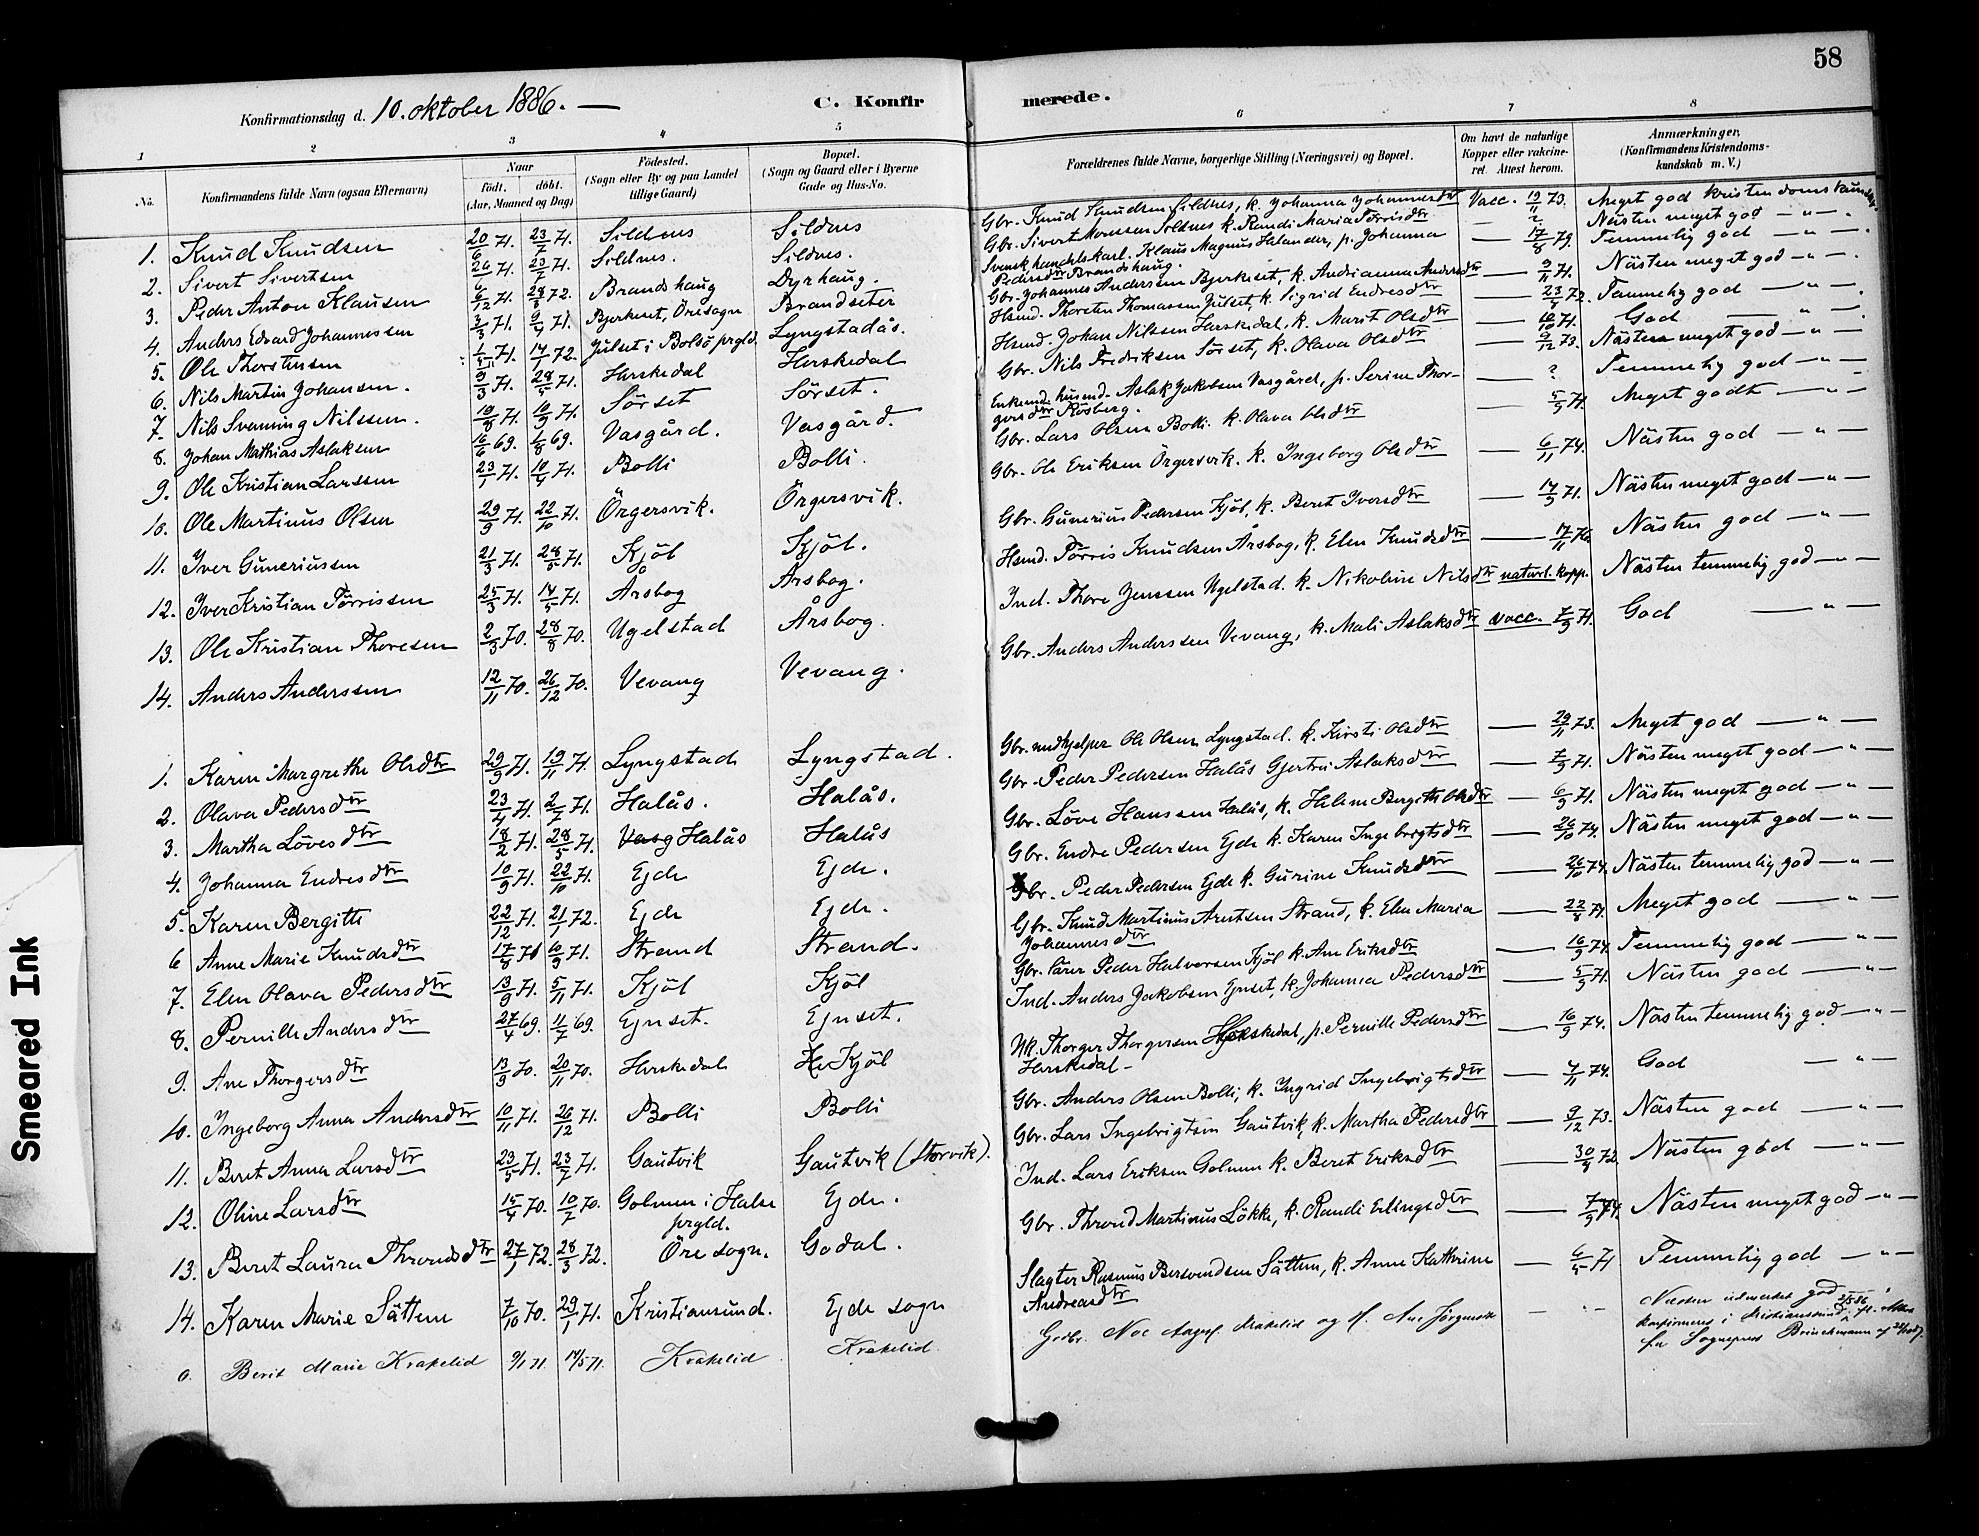 58
Konfirmationsdag d. 10. oktober 1886. —
C. Konfir merede.
1 2 3 4 5 6 7 8
No. Konfirmandens fulde Navn (ogsaa Efternavn) Naar født. døbt. (Aar, Maaned og Dag) Fødested. (Sogn eller By og paa Landet tillige Gaard) Bopæl. (Sogn og Gaard eller i Byerne Gade og Hus-No. Forældrenes fulde Navne, borgerlige Stilling (Næringsvei) og Bopæl. Om havt de naturlige Kopper eller vakcineret. Attest herom. Anmærkninger, (Konfirmandens Kristendomskundskab m. V.)
1. Knud Knudsen 20/6 71. 23/7 71. Sildnes Sildnes Gbr. Knud Knudsen Sildnes, k. Johanna Johannesdtr Vacc. 19/11 73. Meget god kristendomskundsk.
2. Sivert Sivertsen 26/6 71. 23/7 71. Sildnes. Sildnes. Gbr. Sivert Monssen Sildnes k. Randi Maria Törrisdtr — Nästen meget god — " —
3. Peder Anton Klausen 6/12 71. 28/3 72. Brandshaug Dyrhaug. Svensk handelskarl. Klaus Magnus Helander, p. Johanna Pedersdtr Brandshaug. — 17/8 79. Temmelig god — " —
4. Anders Edvard Johannessen 3/3 71. 9/4 71. Bjerkeset, Öresogn Brandseter Gbr. Johannes Anderssen Bjerkeset, k. Andrianna Andersdtr — Nästen meget god — " —
5. Ole Thorstensen 14/1 72. Julset i Bolsö prgld. Lyngstadås. Husmd. Thorsten Thomassen Julset, k. Sigrid Endresdtr — Temmelig god — " —
6. Nils Martin Johansen. 9/3 71. 28/5 71. Herskedal Herskedal Husmd. Johan Nilssen Herskedal, k. Marit Olsdtr — 10/10 71. God — " —
7. Nils Svenning Nilssen. 10/8 71. 10/9 71. Sörset Sörset. Gbr. Nils Fredriksen Sörset, k. Olava Olsdtr — 9/12 73. Nästen meget god — " —
8. Johan Mathias Aslaksen 16/6 69. 1/8 69. Vasgård. Vasgård. Enkemd. husmd. Aslak Jakobsen Vasgård, p. Serine Thorgersdtr Rösberg. — ? Temmelig god — " —
9. Ole Kristian Larssen 23/1 71. 10/4 71. Bolli Bolli. Gbr. Lars Olsen Bolli. k. Olava Olsdtr — 5/9 71. Meget godt — " —
10. Ole Martinus Olsen 29/9 71. 22/10 71. Örgersvik. Örgersvik. Gbr. Ole Eriksen Örgersvik. k. Ingeborg Olsdtr — 6/11 74. Nästen god — " —
11. Iver Guneriussen 21/3 71. 28/5 71. Kjöl Kjöl. Gbr. Gunerius Pedersen Kjöl, k. Beret Iversdtr — 17/9 71. Nästen meget god — " —
12. Iver Kristian Törrissen 25/3 71. 14/5 71. Årsbog Årsbog. Husmd. Törris Knudsen Årsbog, k. Elen Knudsdtr — 17/11 76. Nästen god — " —
13. Ole Kristian Thoresen 2/3 70. 28/8 70. Ugelstad Årsbog. Ind. Thore Jenssen Ugelstad. k. Nikoline Nilsdtr naturl. kopp. Nästen temmelig god — " —
14. Anders Anderssen 12/11 70. 26/12 70. Vevang Vevang. Gbr. Anders Anderssen Vevang, k. Mali Aslaksdtr vacc. 7/9 71. God — " —
1. Karen Margrethe Olsdtr 29/9 71. 19/11 71. Lyngstad Lyngstad. Gbr. medhjelper Ole Olsen Lyngstad. k. Kirsti Olsdtr — 29/11 73. Meget god — " —
2. Olava Pedersdtr 23/4 71. 2/7 71. Halås. Halås. Gbr. Peder Pedersen Halås Gjertru Aslaksdtr — 7/9 71. Nästen meget god — " —
3. Martha Lövesdtr 18/2 71. 28/5 71. Vasg Halås Halås Gbr. Löve Hanssen Halås, k. Helene Bergitte Olsdtr — 6/9 71. Nästen meget god — " —
4. Johanna Endresdtr 10/9 71. 22/10 71. Ejde Ejde. Gbr. Endre Pedersen Ejde k. Karen Ingebrigtsdtr — 26/10 74. Nästen meget god — " —
5. Karen Bergitte 22/12 71. 21/1 72. Ejde Ejde. Gbr. Peder Pedersen Ejde k. Gurine Knudsdtr — 26/10 74. Nästen temmelig god — " —
6 Anne Marie Knudsdtr 17/8 71 10/9 71. Strand Strand. Gbr. Knud Martinus Arntsen Strand, k. Elen Maria Johannesdtr — 22/8 71. Meget god — " —
7. Elen Olava Pedersdtr 13/9 71. 5/11 71. Kjöl Kjöl Gbr. lärer Peder Halvorsen Kjöl k. Ane Eriksdtr — 16/9 74. Temmelig god — " —
8. Pernille Andersdtr 27/4 69. 11/7 69. Ejnset. Ejnset. Ind. Anders Jakobsen Ejnset, k. Johanna Pedersdtr — 5/9 71. Nästen god — " —
9. Ane Thorgersdtr 13/9 70. 20/11 70. Herskedal He Kjöl Uk. Thorger Thorgersen Herskedal, p. Pernille Pedersdtr Herskedal — 16/9 74. Nästen temmelig god — " —
10. Ingeborg Anna Andersdtr 10/11 71. 26/12 71. Bolli Bolli Gbr. Anders Olsen Bolli, k. Ingrid Ingebrigtsdtr — 4/11 74. God — " —
11. Beret Anna Larsdtr 23/5 71. 23/7 71. Gautvik Gautvik (Storvik). Gbr. Lars Ingebrigtsen Gautvik, k. Martha Pedersdtr — 9/12 73. Nästen god — " —
12. Oline Larsdtr 15/4 70. 10/7 70. Golmen i Halse prgld. Ejde. Ind. Lars Eriksen Golmen k. Beret Eriksdtr — 30/9 72. Nästen god — " —
13. Beret Laura Throndsdtr 27/1 72. 28/3 72. Öre sogn. Godal. Gbr. Thrond Martinus Lökke, k. Randi Erlingsdtr — 7/9 74. Nästen meget god — " —
14. Karen Marie Sättem 7/10 70. 29/1 71. Kristiansund. Ejde sogn Slagter Rasmus Bersvendsen Sättem, k. Anne Kathrine Andreasdtr — 6/5 71 Temmelig god — " —
0. Berit Marie Krakelid 9/1 71. 14/5 71. Krakelid Krakelid. Gaardbr. Noe Krakelid og — Næsten udmerket god konfirmeret i Kristianssund fra Sognepræst Brinchmann
Smeared Ink